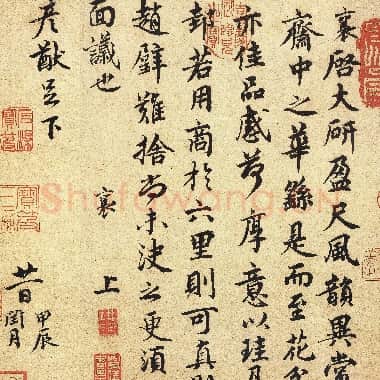 襄啓大研盈尺風韻異常
齋中之華繇是而至花
亦佳品感荷厚意以珪
邯若用商於六里則可真
趙璧難捨尚未決之更須
面議也
襄上
彥猷足下
廿一日
甲辰閏月
Shufawang.CN